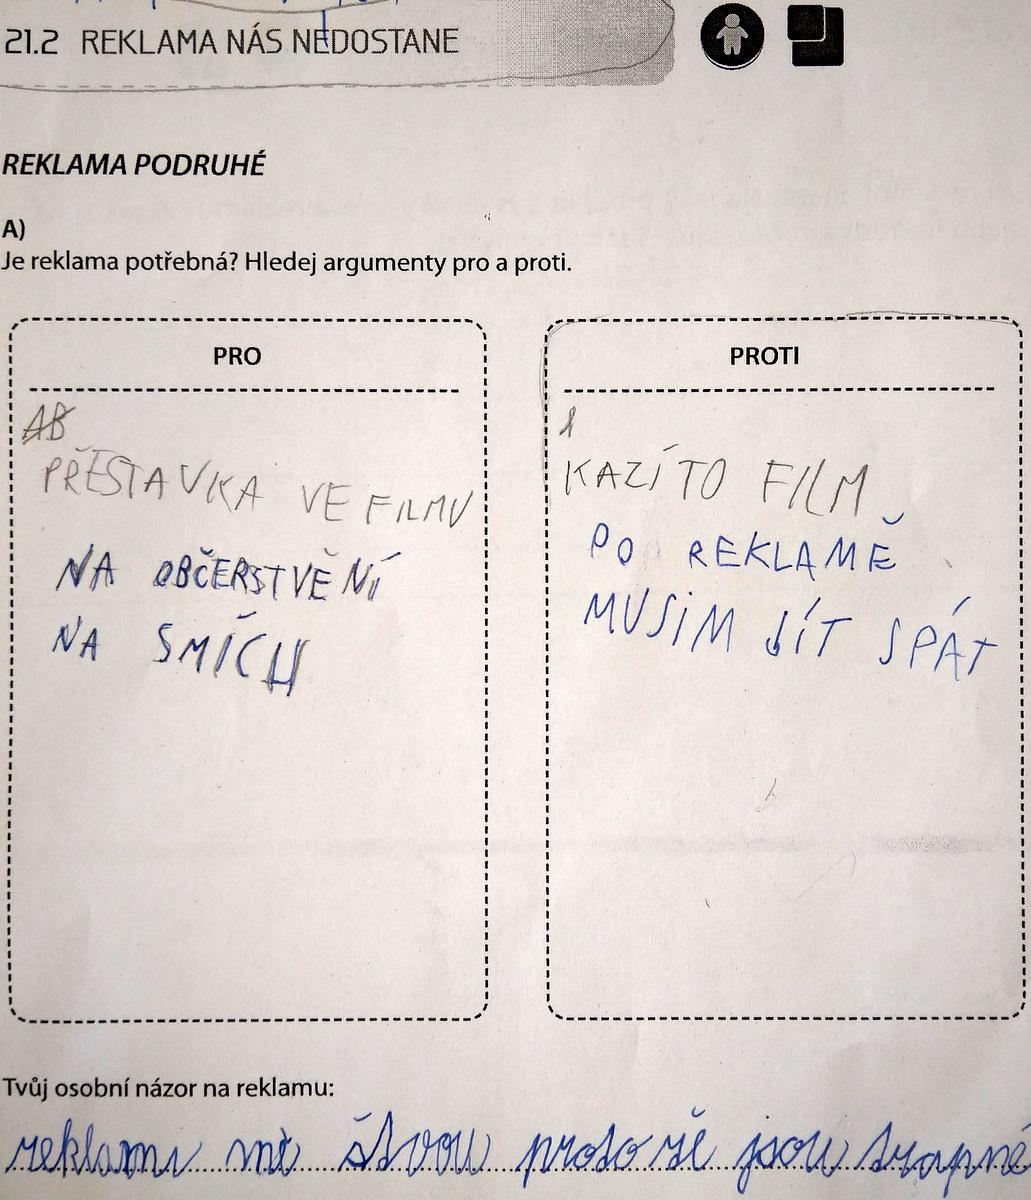 21.2 REKLAMA NÁS NEDOSTANE
REKLAMA PODRUHÉ
A)
Je reklama potřebná? Hledej argumenty pro a proti.
PRO
AB
PŘESTAVKA VE FILMU
NA OBČERSTVĚNÍ
NA SMÍCH
PROTI
KAZÍ TO FILM
PO REKLAMĚ
MUSIM JÍT SPÁT
Tvůj osobní názor na reklamu:
reklami mě štvou protože jsou trapné